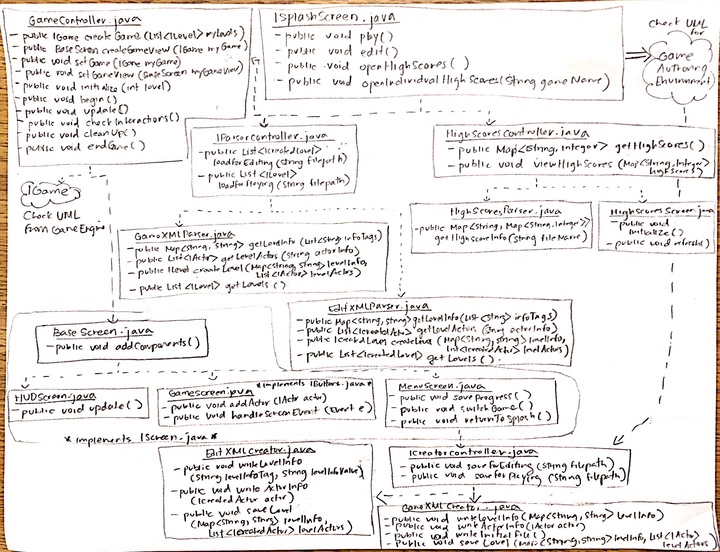 GameController.java
- public IGame createGame (List<ILevel> myLevels)
- public BaseScreen createGameView (IGame myGame)
- public void setGame (IGame myGame)
- public void setGameView (BaseScreen myGameView)
- public void initialize (int level)
- public void begin()
- public void update()
- public void checkInteractions()
- public void cleanUp()
- public void endGame()
ISplashScreen.java
- public void play()
- public void edit()
- public void openHighScores()
- public void openIndividualHighScores(String gameName)
Check UML
for
Game
Authoring
Environment
IParserController.java
- public List<ICreatedLevel>
loadForEditing (string filepath)
- public List<ILevel>
loadForPlaying (string filepath)
HighScoresController.java
- public Map<String, Integer> getHighScores()
- public void viewHighScores (Map<String, Integer>
highscores)
IGame
Check UML
From GameEngine
HighScoresParser.java
- public Map<String, Map<String, Integer>>
getHighScoreInfo(String fileName)
HighScoresScreen.java
- public void
initialize()
- public void refresh()
GameXMLParser.java
- public Map<String, String> getLevelInfo (List<String> infoTags)
- public List<IActor> getLevelActors (String actorInfo)
- public ILevel createLevel(Map<String, String> levelInfo,
List<IActor> levelActors)
- public List<ILevel> getLevels()
EditXMLParser.java
- public Map<String, String> getLevelInfo (List<String> infoTags)
- public List<IcreatedActor> getLevelActors (String actorInfo)
- public IcreatedLevel createLevel (Map<String, String> levelInfo,
List<IcreatedActor> levelActors)
- public List<IcreatedLevel> getLevels()
BaseScreen.java
- public void addComponents()
HUDScreen.java
- public void update()
*implements IButtons.java*
GameScreen.java
- public void addActor (IActor actor)
- public void handleScreenEvent (Event e)
MenuScreen.java
- public void saveProgress()
- public void switchGame()
- public void returnToSplash()
* implements IScreen.java *
EditXMLCreator.java
- public void writeLevelInfo
(String levelInfoTag, String levelInfoValue)
- public void writeActorInfo
(ICreatedActor actor)
- public void saveLevel
(Map<String, String> levelInfo,
List<ICreatedActor> levelActors)
ICreatorController.java
- public void saveForEditing (String filepath)
- public void saveForPlaying (String filepath)
GameXMLCreator.java
- public void writeLevelInfo(Map<String, String> levelInfo)
- public void writeActorInfo(IActor actor)
- public void writeInitialFile()
- public void saveLevel (Map<String, String> levelInfo, List<IActor>
levelActors)